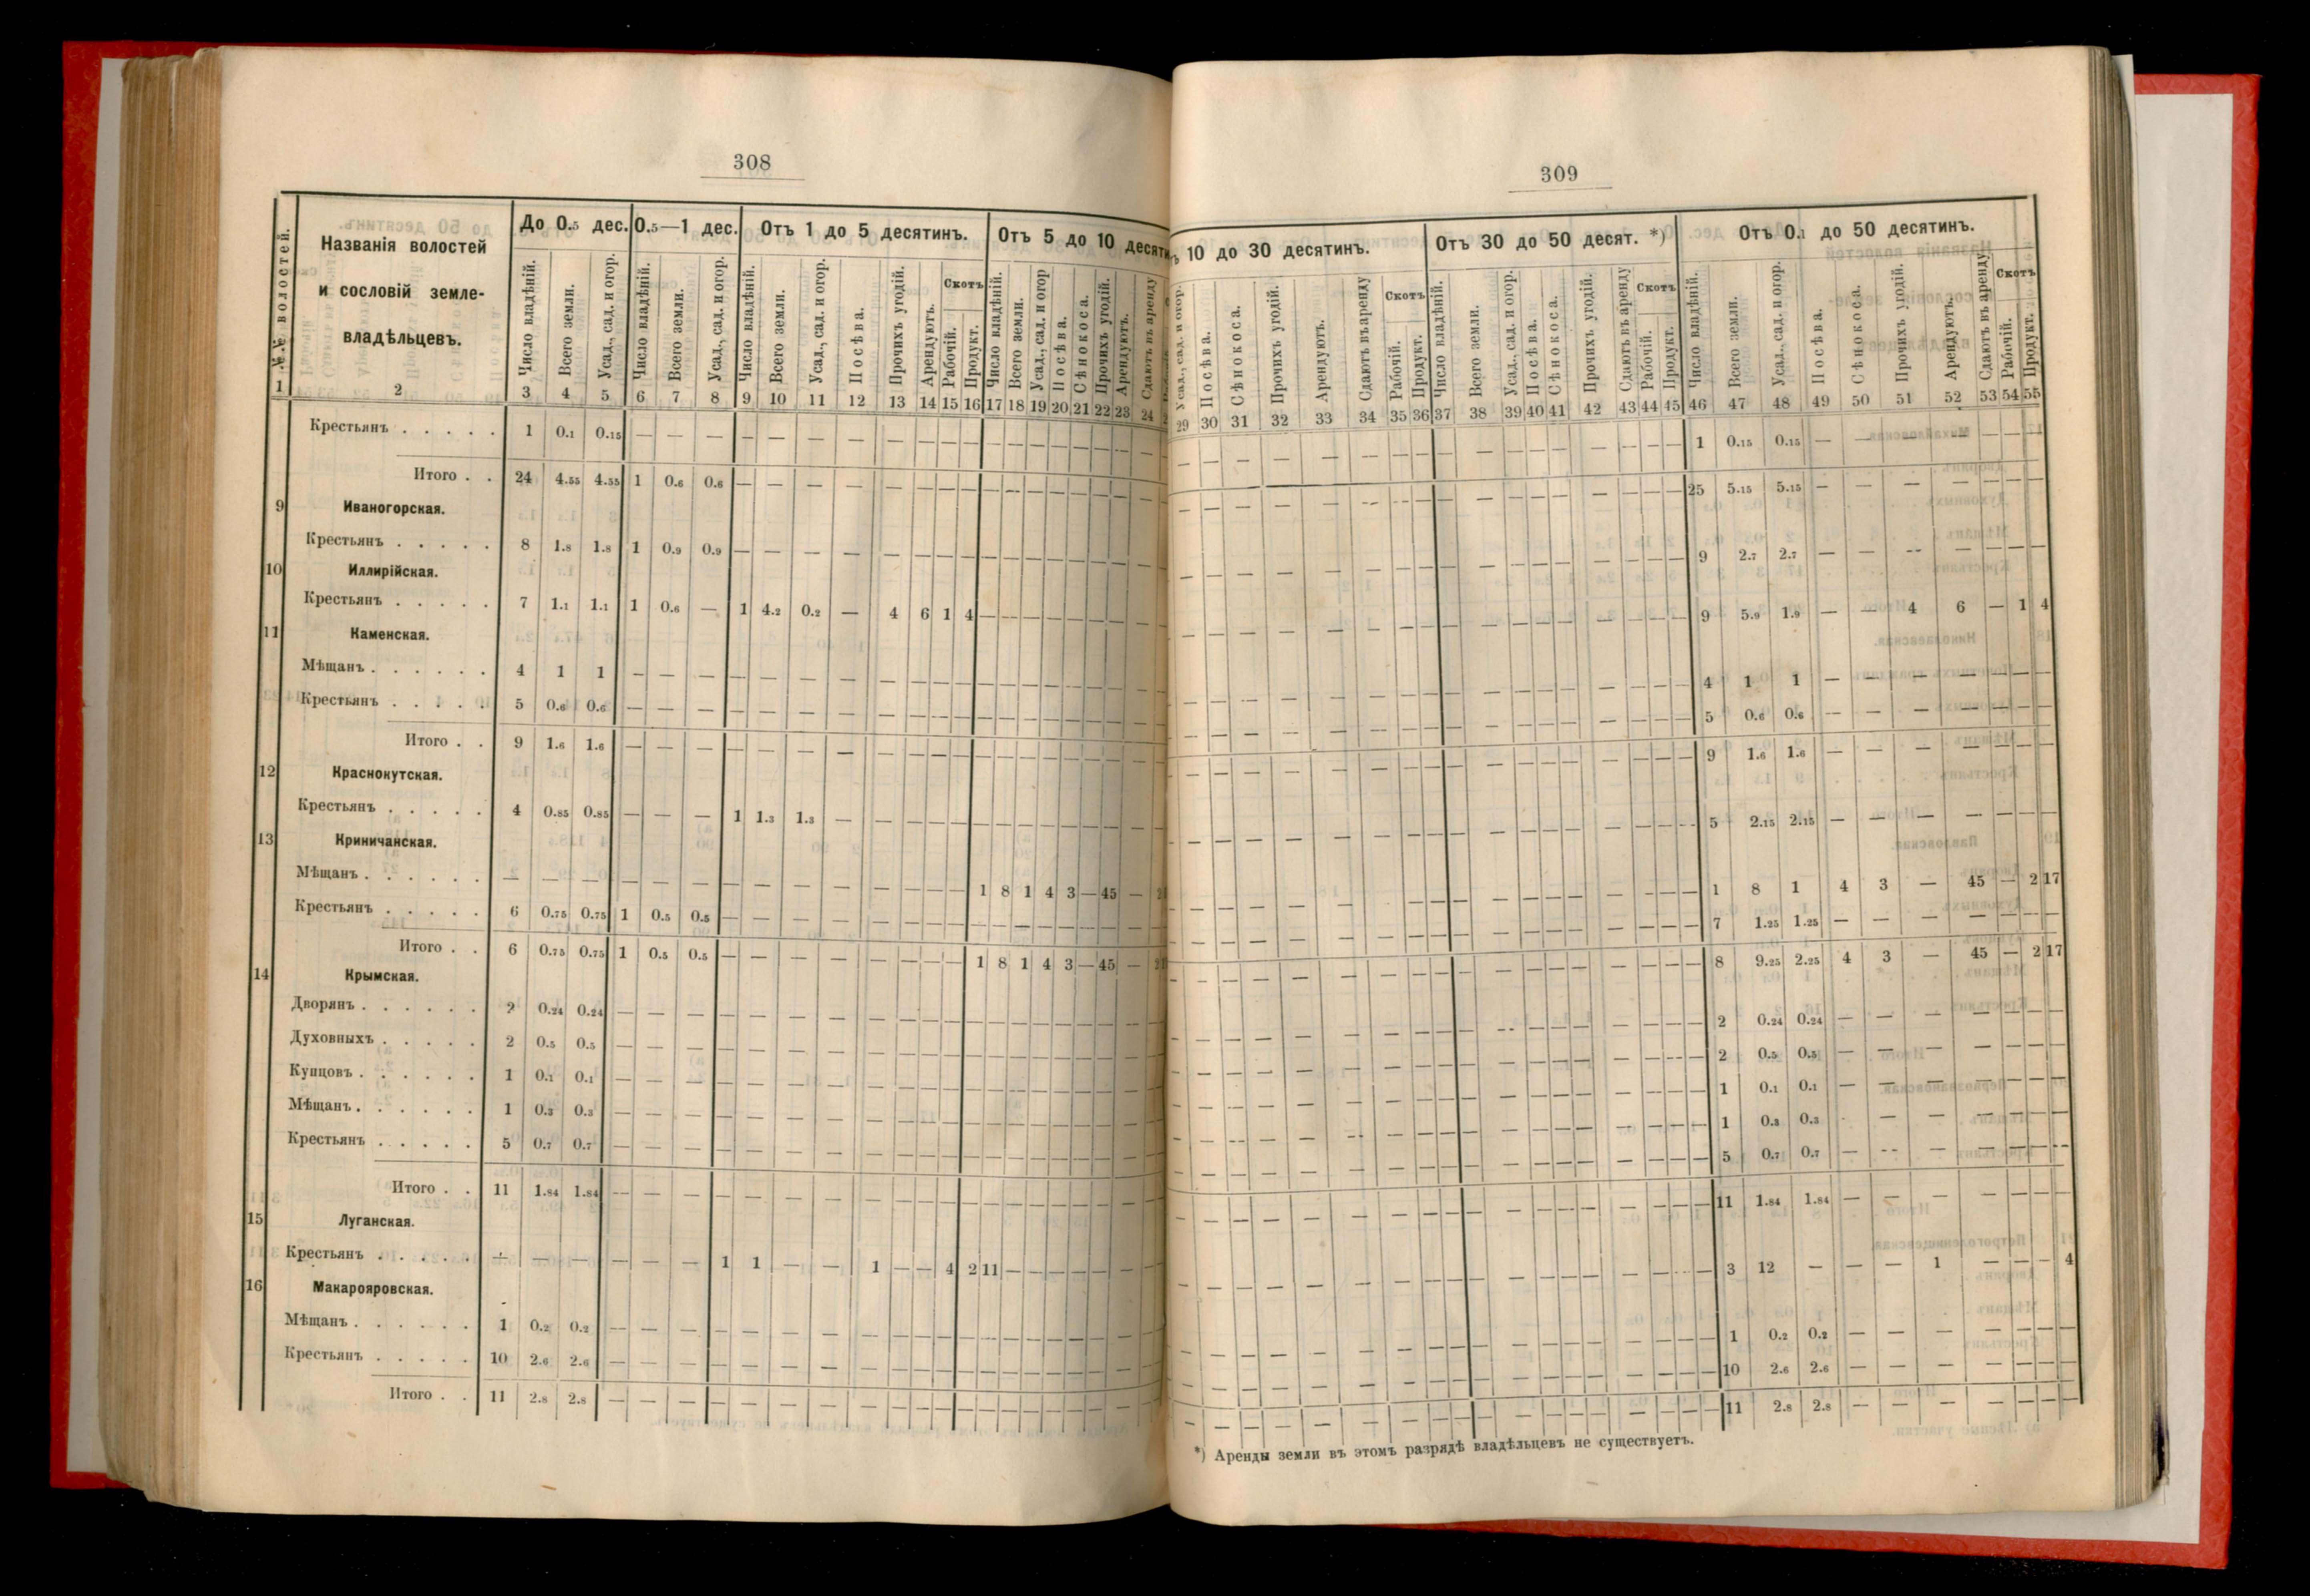 308
№№ волостей.
Названія волостей
и сословій земле-
владѣльцевъ.
До 0.5 дес. 0.5—1 дес. Отъ 1 до 5 десятинъ. Отъ 5 до 10 десяти
Число владѣній. Всего земли. Усад., сад. и огор. Число владѣній. Всего земли. Усад., сад. и огор. Число владѣній. Всего земли. Усад., сад. и огор. Посѣва. Прочихъ угодій. Арендуютъ. Скотъ Рабочій. Продукт. Число владѣній. Всего земли. Усад., сад. и огор Посѣва. Сѣнокоса. Прочихъ угодій. Арендуютъ. Сдаютъ въ аренду
1 2 3 4 5 6 7 8 9 10 11 12 13 14 15 16 17 18 19 20 21 22 23 24 2
Крестьянъ . . . . . 1 0.1 0.15 — — — — — — — — — — — — — — — — — — —
Итого . . 24 4.55 4.55 1 0.6 0.6 — — — — — — — — — — — — — — — —
9 Иваногорская.
Крестьянъ . . . . . 8 1.8 1.8 1 0.9 0.9 — — — — — — — — — — — — — — — —
10 Иллирійская.
Крестьянъ . . . . . 7 1.1 1.1 1 0.6 — 1 4.2 0.2 — 4 6 1 4 — — — — — — — —
11 Каменская.
Мѣщанъ . . . . . . 4 1 1 — — — — — — — — — — — — — — — — — — —
Крестьянъ . . . . . 5 0.6 0.6 — — — — — — — — — — — — — — — — — — —
Итого . . 9 1.6 1.6 — — — — — — — — — — — — — — — — — — —
12 Краснокутская.
Крестьянъ . . . . . 4 0.85 0.85 — — — 1 1.3 1.3 — — — — — — — — — — — — —
13 Криничанская.
Мѣщанъ . . . . . . — — — — — — — — — — — — — — 1 8 1 4 3 — 45 —
Крестьянъ . . . . . 6 0.75 0.75 1 0.5 0.5 — — — — — — — — — — — — — — — —
Итого . . 6 0.75 0.75 1 0.5 0.5 — — — — — — — — 1 8 1 4 3 — 45 —
14 Крымская.
Дворянъ . . . . . . 2 0.24 0.24 — — — — — — — — — — — — — — — — — — —
Духовныхъ . . . . . 2 0.5 0.5 — — — — — — — — — — — — — — — — — — —
Купцовъ . . . . . . 1 0.1 0.1 — — — — — — — — — — — — — — — — — — —
Мѣщанъ . . . . . . 1 0.3 0.3 — — — — — — — — — — — — — — — — — — —
Крестьянъ . . . . . 5 0.7 0.7 — — — — — — — — — — — — — — — — — — —
Итого . . 11 1.84 1.84 — — — — — — — — — — — — — — — — — — —
15 Луганская.
Крестьянъ . . . . . — — — — — — 1 1 — — 1 — — 4 2 11 — — — — — —
16 Макарояровская.
Мѣщанъ . . . . . . 1 0.2 0.2 — — — — — — — — — — — — — — — — — — —
Крестьянъ . . . . . 10 2.6 2.6 — — — — — — — — — — — — — — — — — — —
Итого . . 11 2.8 2.8 — — — — — — — — — — — — — — — — — — —
309
ъ 10 до 30 десятинъ. Отъ 30 до 50 десят. *) Отъ 0.1 до 50 десятинъ.
Усад., сад. и огор. Посѣва. Сѣнокоса. Прочихъ угодій. Арендуютъ. Сдаютъ въ аренду Скотъ Рабочій. Продукт. Число владѣній. Всего земли. Усад., сад. и огор. Посѣва. Сѣнокоса. Прочихъ угодій. Сдаютъ въ аренду Скотъ Рабочій. Продукт. Число владѣній. Всего земли. Усад., сад. и огор. Посѣва. Сѣнокоса. Прочихъ угодій. Арендуютъ. Сдаютъ въ аренду Скотъ Рабочій. Продукт.
29 30 31 32 33 34 35 36 37 38 39 40 41 42 43 44 45 46 47 48 49 50 51 52 53 54 55
— — — — — — — — — — — — — — — — — 1 0.15 0.15 — — — — — — —
— — — — — — — — — — — — — — — — — 25 5.15 5.15 — — — — — — —
— — — — — — — — — — — — — — — — — 9 2.7 2.7 — — — — — — —
— — — — — — — — — — — — — — — — — 9 5.9 1.9 — — 4 6 — 1 4
— — — — — — — — — — — — — — — — — 4 1 1 — — — — — — —
— — — — — — — — — — — — — — — — — 5 0.6 0.6 — — — — — — —
— — — — — — — — — — — — — — — — — 9 1.6 1.6 — — — — — — —
— — — — — — — — — — — — — — — — — 5 2.15 2.15 — — — — — — —
— — — — — — — — — — — — — — — — — 1 8 1 4 3 — 45 — 2 17
— — — — — — — — — — — — — — — — — 7 1.25 1.25 — — — — — — —
— — — — — — — — — — — — — — — — — 8 9.25 2.25 4 3 — 45 — 2 17
— — — — — — — — — — — — — — — — — 2 0.24 0.24 — — — — — — —
— — — — — — — — — — — — — — — — — 2 0.5 0.5 — — — — — — —
— — — — — — — — — — — — — — — — — 1 0.1 0.1 — — — — — — —
— — — — — — — — — — — — — — — — — 1 0.3 0.3 — — — — — — —
— — — — — — — — — — — — — — — — — 5 0.7 0.7 — — — — — — —
— — — — — — — — — — — — — — — — — 11 1.84 1.84 — — — — — — —
— — — — — — — — — — — — — — — — — 3 12 — — — 1 — — — 4
— — — — — — — — — — — — — — — — — 1 0.2 0.2 — — — — — — —
— — — — — — — — — — — — — — — — — 10 2.6 2.6 — — — — — — —
— — — — — — — — — — — — — — — — — 11 2.8 2.8 — — — — — — —
*) Аренды земли въ этомъ разрядѣ владѣльцевъ не существуетъ.